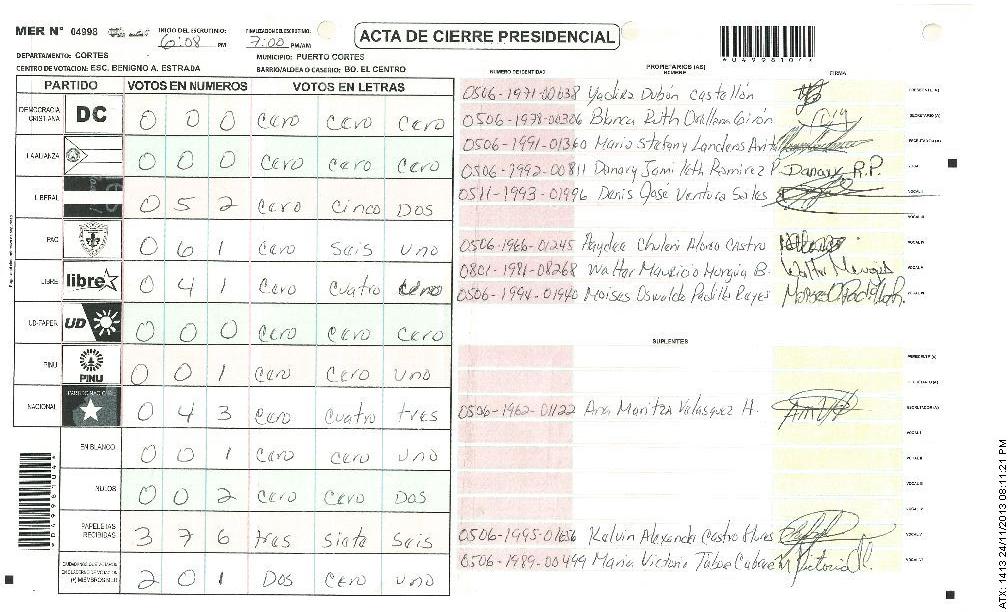 MER N° 04998
INICIO DEL ESCRUTINIO: 6:08 PM
FINALIZACION DEL ESCRUTINIO: 7:00 PM/AM
ACTA DE CIERRE PRESIDENCIAL
DEPARTAMENTO: CORTES
MUNICIPIO: PUERTO CORTES
CENTRO DE VOTACION: ESC. BENIGNO A. ESTRADA
BARRIO/ALDEA O CASERIO: BO. EL CENTRO
PARTIDO VOTOS EN NUMEROS VOTOS EN LETRAS
DEMOCRACIA CRISTIANA DC 0 0 0 Cero Cero Cero
LA ALIANZA 0 0 0 Cero Cero Cero
LIBERAL 0 5 2 Cero Cinco Dos
PAC 0 6 1 Cero Seis Uno
LIBRE libre 0 4 1 Cero Cuatro
UD-FAPER UD 0 0 0 Cero Cero Cero
PINU PINU 0 0 1 Cero Cero Uno
NACIONAL PARTIDO NACIONAL 0 4 3 Cero Cuatro tres
EN BLANCO 0 0 1 Cero Cero Uno
NULOS 0 0 2 Cero Cero Dos
PAPELETAS RECIBIDAS 3 7 6 tres siete Seis
CIUDADANOS QUE VOTARON 2 0 1 Dos Cero Uno
NUMERO DE IDENTIDAD
PROPIETARIOS (AS)
NOMBRE
FIRMA
0506-1971-00038 Yadira Dubón Castellón PRESIDENTE (A)
0506-1978-00306 Blanca Ruth Orellana Girón SECRETARIO (A)
0506-1991-01360 Mario Stefany Landeros ESCRUTADOR (A)
0506-1992-00811 Danary Ramirez P. Danary R.P. VOCAL I
0511-1993-01996 Denis José Ventura Sales VOCAL II
VOCAL III
0506-1966-01245 Haydee Alonso Castro VOCAL IV
0801-1981-08268 Walter Mauricio Murguia B. VOCAL V
0506-1994-01940 Moises Oswaldo Padilla Reyes VOCAL VI
SUPLENTES
PRESIDENTE (A)
SECRETARIO (A)
0506-1962-01122 Ana Maritza Velasquez H. ESCRUTADOR (A)
VOCAL I
VOCAL II
VOCAL III
VOCAL IV
0506-1995-01656 Kelvin Alexander Castro Flores VOCAL V
0506-1989-00499 Maria Victoria VOCAL VI
*04998104*
ATX: 1413 24/11/2013 08:11:21 PM